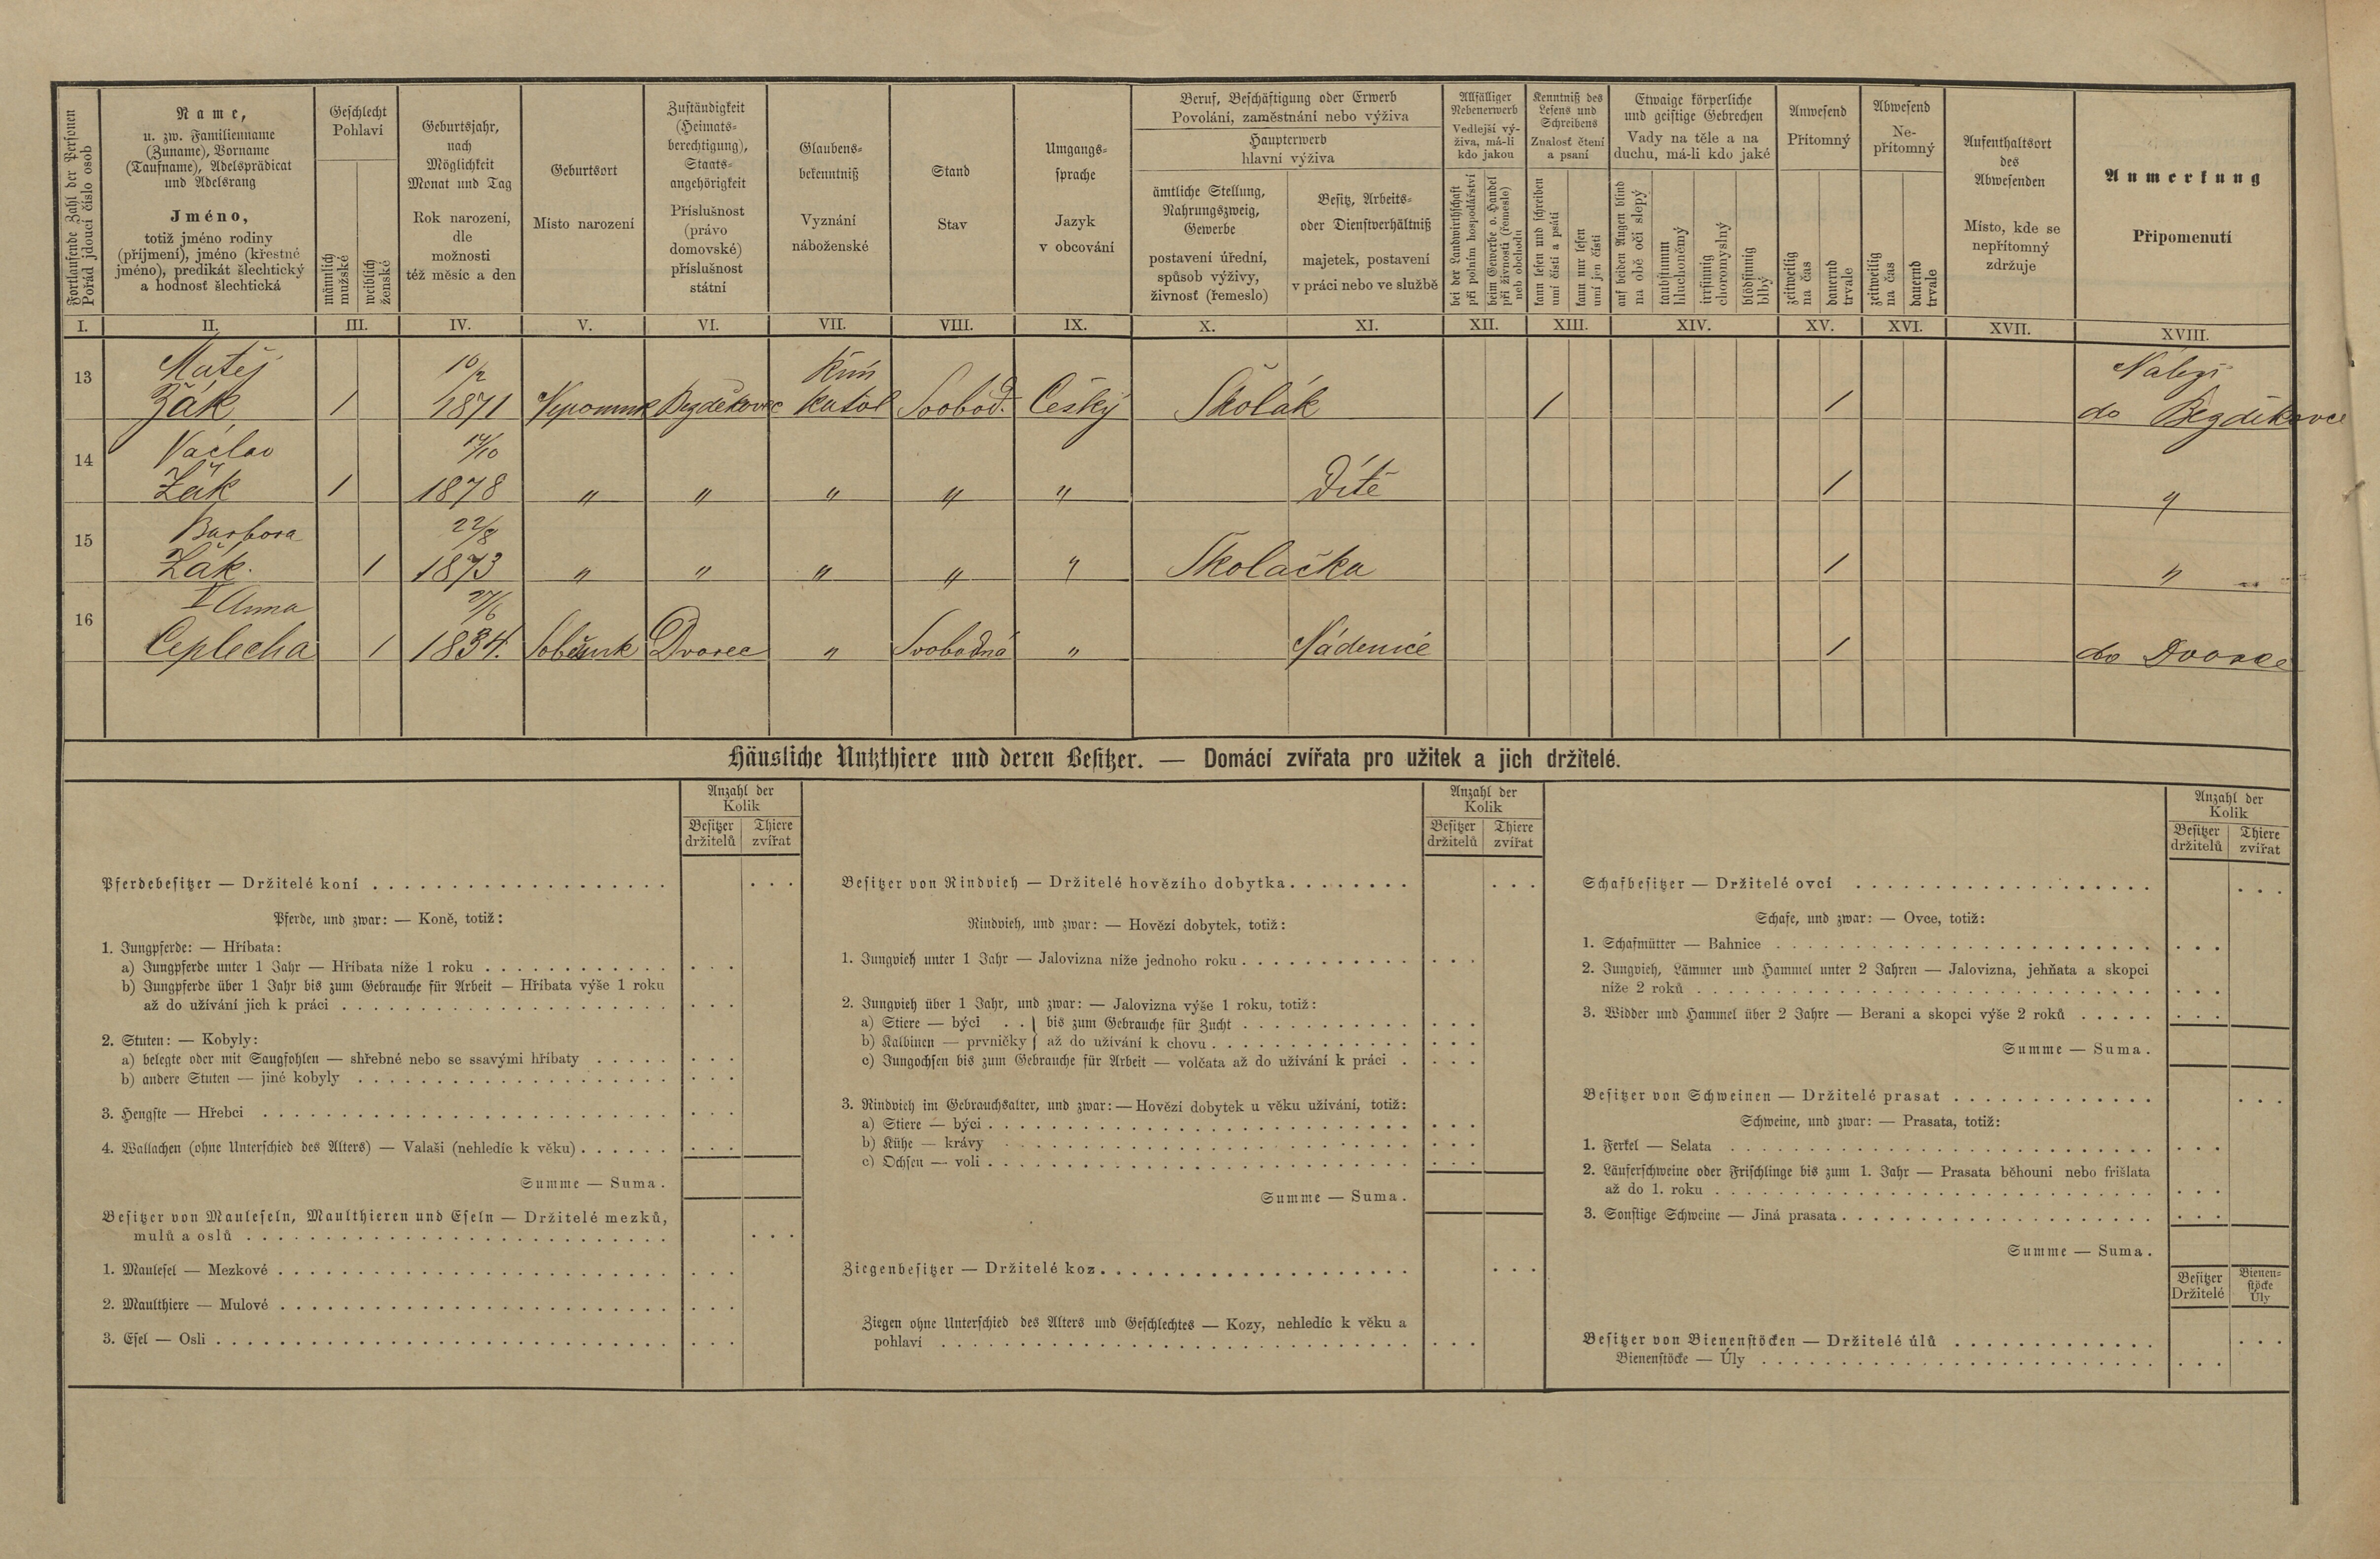 Fortlaufende Zahl der Personen
Pořád jdoucí číslo osob
Name,
u. zw. Familienname
(Zuname), Vorname
(Taufname), Adelsprädicat
und Adelsrang
Jméno,
totiž jméno rodiny
(příjmení), jméno (křestné
jméno), predikát šlechtický
a hodnost šlechtická
Geschlecht
Pohlaví
männlich
mužské
weiblich
ženské
Geburtsjahr,
nach
Möglichkeit
Monat und Tag
Rok narození,
dle
možnosti
též měsíc a den
Geburtsort
Místo narození
Zuständigkeit
(Heimats-
berechtigung),
Staats-
angehörigkeit
Příslušnost
(právo
domovské)
příslušnost
státní
Glaubens-
bekenntniß
Vyznání
náboženské
Stand
Stav
Umgangs-
sprache
Jazyk
v obcování
Beruf, Beschäftigung oder Erwerb
Povolání, zaměstnání nebo výživa
Haupterwerb
hlavní výživa
ämtliche Stellung,
Nahrungszweig,
Gewerbe
postavení úřední,
spůsob výživy,
živnosť (řemeslo)
Besitz, Arbeits-
oder Dienstverhältniß
majetek, postavení
v práci nebo ve službě
Allfälliger
Nebenerwerb
Vedlejší vý-
živa, má-li
kdo jakou
bei der Landwirthschaft
při polním hospodářství
beim Gewerbe o. Handel
při živnosti (řemeslo)
neb obchodu
Kenntniß des
Lesens und
Schreibens
Znalosť čtení
a psaní
kann lesen und schreiben
umí čísti a psáti
kann nur lesen
umí jen čísti
Etwaige körperliche
und geistige Gebrechen
Vady na těle a na
duchu, má-li kdo jaké
auf beiden Augen blind
na obě oči slepý
taubstumm
hluchoněmý
irrsinnig
choromyslný
blödsinnig
blbý
Anwesend
Přítomný
zeitweilig
na čas
dauernd
trvale
Abwesend
Ne-
přítomný
zeitweilig
na čas
dauernd
trvale
Aufenthaltsort
des
Abwesenden
Místo, kde se
nepřítomný
zdržuje
Anmerkung
Připomenutí
I. II. III. IV. V. VI. VII. VIII. IX. X. XI. XII. XIII. XIV. XV. XVI. XVII. XVIII.
Matěj 10/2 Řím Náleží
13 Žák 1 1871 Nepomuk Bezděkovec katol Svobod. Český Školák 1 1 do Bezděkovce
Václav 14/10
14 Žák 1 1878 " " " " " Dítě 1 "
Barbora 22/8
15 Žák. 1 1873 " " " " " Školačka 1 "
Anna 27/6
16 Ceplecha 1 1834. Soběsuk Dvorec " Svobodná " Nádenicé 1 do Dvorce
Häusliche Nutzthiere und deren Besitzer. — Domácí zvířata pro užitek a jich držitelé.
Anzahl der
Kolik
Besitzer Thiere
držitelů zvířat
Pferdebesitzer — Držitelé koní
Pferde, und zwar: — Koně, totiž:
1. Jungpferde: — Hříbata:
a) Jungpferde unter 1 Jahr — Hříbata níže 1 roku
b) Jungpferde über 1 Jahr bis zum Gebrauche für Arbeit — Hříbata výše 1 roku
až do užívání jich k práci
2. Stuten: — Kobyly:
a) belegte oder mit Saugfohlen — shřebné nebo se ssavými hříbaty
b) andere Stuten — jiné kobyly
3. Hengste — Hřebci
4. Wallachen (ohne Unterschied des Alters) — Valaši (nehledíc k věku)
Summe — Suma.
Besitzer von Mauleseln, Maulthieren und Eseln — Držitelé mezků,
mulů a oslů
1. Maulesel — Mezkové
2. Maulthiere — Mulové
3. Esel — Osli
Anzahl der
Kolik
Besitzer Thiere
držitelů zvířat
Besitzer von Rindvieh — Držitelé hovězího dobytka
Rindvieh, und zwar: — Hovězí dobytek, totiž:
1. Jungvieh unter 1 Jahr — Jalovizna níže jednoho roku
2. Jungvieh über 1 Jahr, und zwar: — Jalovizna výše 1 roku, totiž:
a) Stiere — býci . . } bis zum Gebrauche für Zucht
b) Kalbinen — prvničky } až do užívání k chovu
c) Jungochsen bis zum Gebrauche für Arbeit — volčata až do užívání k práci
3. Rindvieh im Gebrauchsalter, und zwar: — Hovězí dobytek u věku užívání, totiž:
a) Stiere — býci
b) Kühe — krávy
c) Ochsen — voli
Summe — Suma.
Ziegenbesitzer — Držitelé koz
Ziegen ohne Unterschied des Alters und Geschlechtes — Kozy, nehledíc k věku a
pohlaví
Anzahl der
Kolik
Besitzer Thiere
držitelů zvířat
Schafbesitzer — Držitelé ovcí
Schafe, und zwar: — Ovce, totiž:
1. Schafmütter — Bahnice
2. Jungvieh, Lämmer und Hammel unter 2 Jahren — Jalovizna, jehňata a skopci
níže 2 roků
3. Widder und Hammel über 2 Jahre — Berani a skopci výše 2 roků
Summe — Suma.
Besitzer von Schweinen — Držitelé prasat
Schweine, und zwar: — Prasata, totiž:
1. Ferkel — Selata
2. Läuferschweine oder Frischlinge bis zum 1. Jahr — Prasata běhouni nebo frišlata
až do 1. roku
3. Sonstige Schweine — Jiná prasata
Summe — Suma.
Besitzer
Držitelé
Bienen-
stöcke
Úly
Besitzer von Bienenstöcken — Držitelé úlů
Bienenstöcke — Úly